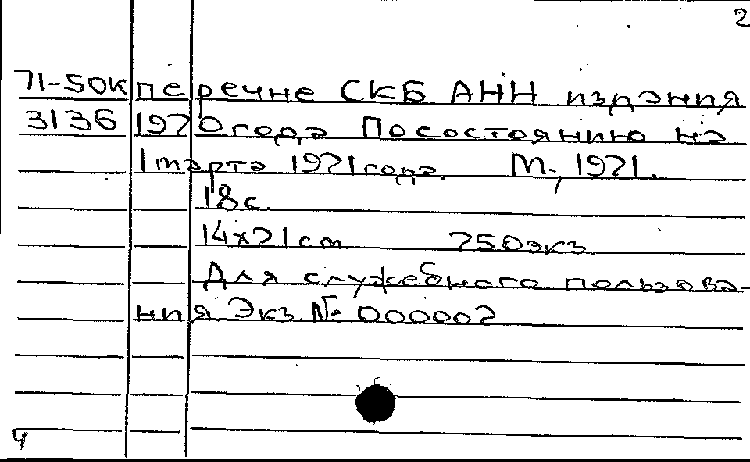 2
71-50к перечне СКБ АНН издания
3136 1970 года По состоянию на
1 марта 1971 года. М., 1971.
18с.
14х21см 250экз.
Для служебного пользова-
ния Экз № 000002
4